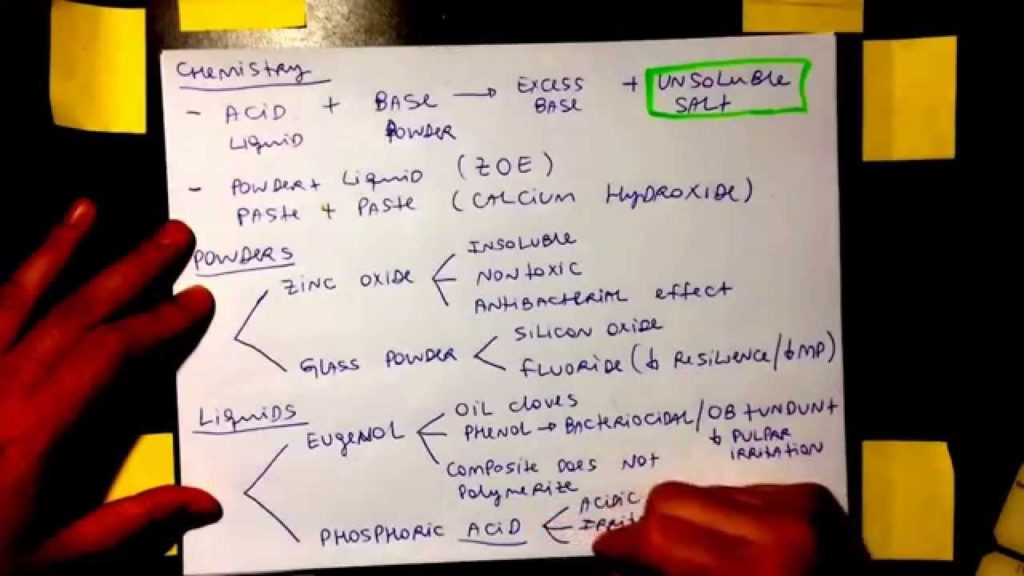 CHEMISTRY
- ACID + BASE → EXCESS BASE + UNSOLUBLE SALT
LIQUID POWDER
- POWDER + LIQUID (ZOE)
PASTE + PASTE (CALCIUM HYDROXIDE)
POWDERS
ZINC OXIDE
INSOLUBLE
NONTOXIC
ANTIBACTERIAL effect
GLASS POWDER
SILICON OXIDE
FLUORIDE (↓ RESILIENCE/↓MP)
LIQUIDS
EUGENOL
OIL CLOVES
PHENOL → BACTERIOCIDAL/OBTUNDUNT
↓ PULPAR
IRRITATION
COMPOSITE DOES NOT
POLYMERIZE
PHOSPHORIC ACID
ACIDIC